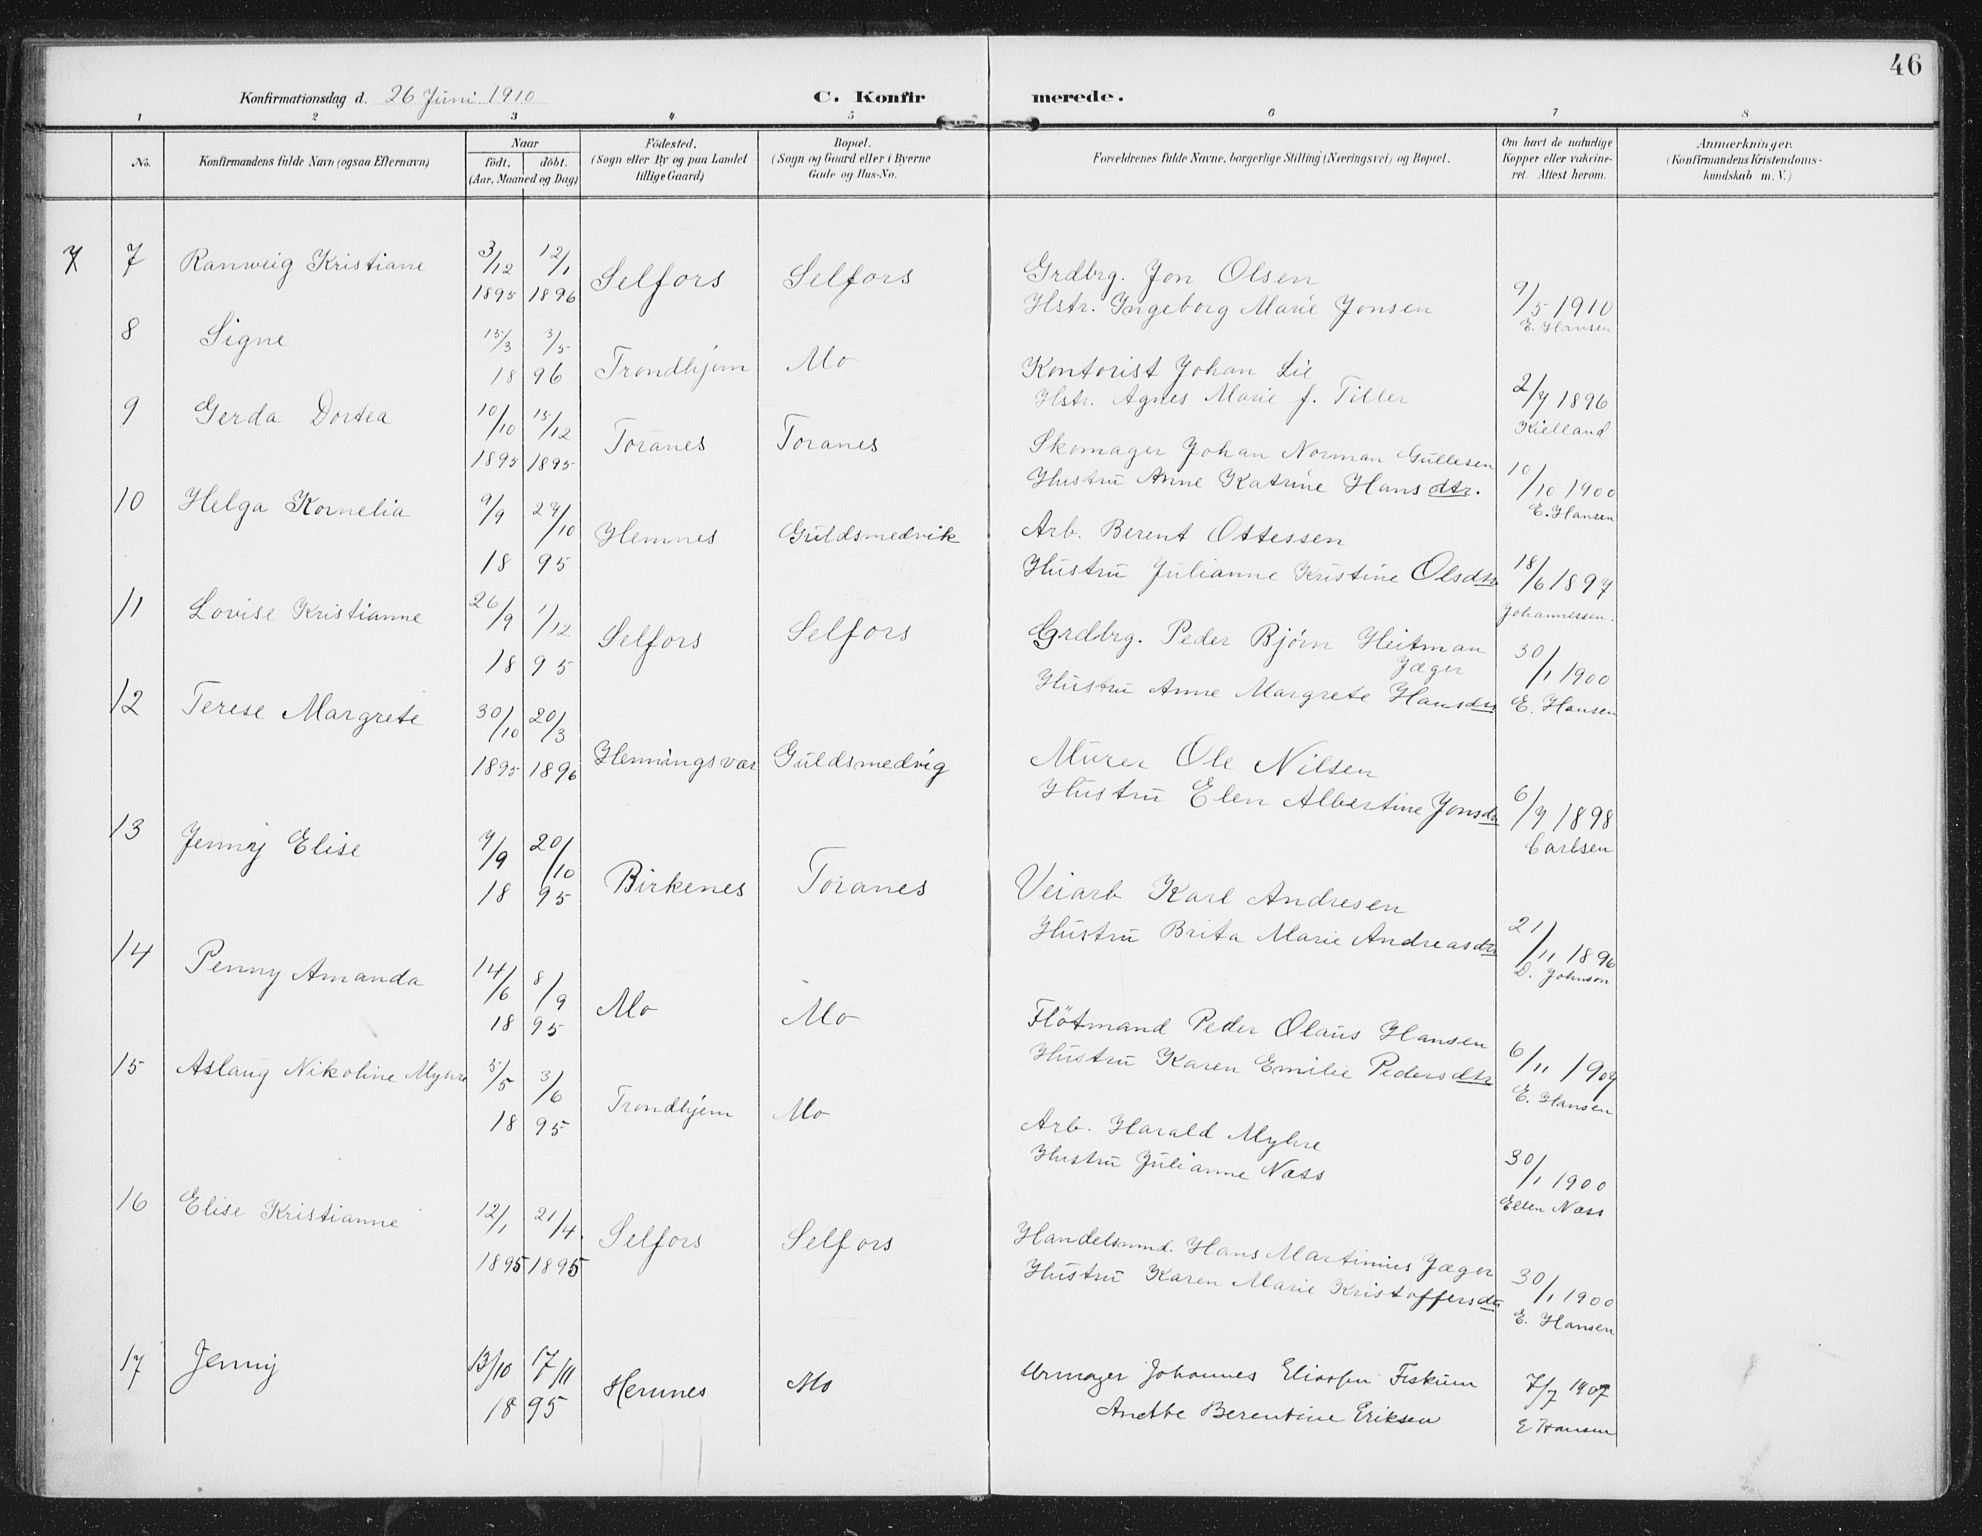 46
Konfirmationsdag d. 26 Juni 1910 C. Konfirmerede.
1 2 3 4 5 6 7 8
No. Konfirmandens fulde Navn (ogsaa Efternavn) Naar født. døbt. (Aar, Maaned og Dag) Fødested. (Sogn eller By og paa Landet tillige Gaard) Bopæl. (Sogn og Gaard eller i Byerne Gade og Hus-No. Forældrenes fulde Navne, borgerlige Stilling (Næringsvei) og Bopæl. Om havt de naturlige Kopper eller vakcineret. Attest herom. Anmærkninger. (Konfirmandens Kristendomskundskab m. V.)
7 7 Ranweig Kristiane 3/12 1895 12/1 1896 Selfors Selfors Grdbrg. Jon Olsen
Hstr. Ingeborg Marie Jonsen 9/5 1910
E. Hansen
8 Signe 15/3 3/5 18 96 Trondhjem Mo Kontorist Johan Lie
Hstr. Agnes Marie f. Tiller 2/7 1896
Kielland
9 Gerda Dortea 10/10 1895 15/12 1895 Toranes Toranes Skomager Johan Norman Gullesen
Hustru Anne Katrine Hansdtr. 10/10 1900
E. Hansen
10 Helga Kornelia 9/9 27/10 18 95 Hemnes Guldsmedvik Arb. Berent Ottessen
Hustru Julianne Kristine Olsdtr 18/6 1897
Johannessen.
11 Lovise Kristianne 26/9 1/12 18 95 Selfors Selfors Grdbrg. Peder Bjørn Heitman
Jæger
Hustru Anne Margrete Hansdtr 30/1 1900
E. Hansen
12 Terese Margrete 30/10 1895 20/3 1896 Henningsvær Guldsmedvig Murer Ole Nilsen
Hustru Elen Albertine Jonsdtr 6/7 1898
Carlsen
13 Jenny Elise 7/9 20/10 18 95 Birkenes Toranes Veiarb Karl Andresen
Hustru Brita Marie Andreasdtr 21/11 1896
D. Johnson
14 Penny Amanda 14/6 8/9 18 95 Mo Mo Flötmand Peder Olaus Hansen
Hustru Karen Emilie Pedersdtr 6/11 1907
E. Hansen
15 Aslaug Nikoline Myhre 5/5 3/6 18 95 Trondhjem Mo Arb. Harald Myhre
Hustru Julianne Næss 30/1 1900
Ellen Næss
16 Elise Kristianne 12/1 1895 21/4. 1895 Selfors Selfors Handelsmnd. Hans Martinius Jæger
Hustru Karen Marie Kristoffersdtr 30/1 1900
E. Hansen
17 Jenny 13/10 17/11 18 95 Hemnes Mo Urmager Johannes Eliassen Fiskum
Berentine Eriksen 7/7 1907
E Hansen